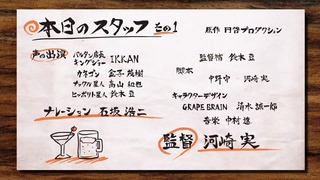 本日のスタッフ その1
声の出演
バルタン店長
キングジョー
IKKAN
カネゴン 金子茂樹
ナックル星人 高山和也
ヒッポリト星人 鈴木豆
ナレーション 石坂浩二
原作 円谷プロダクション
監督補 鈴木豆
脚本
中野守 河崎実
キャラクターデザイン
GRAPE BRAIN 清水誠一郎
音楽 中村遼
監督 河崎実